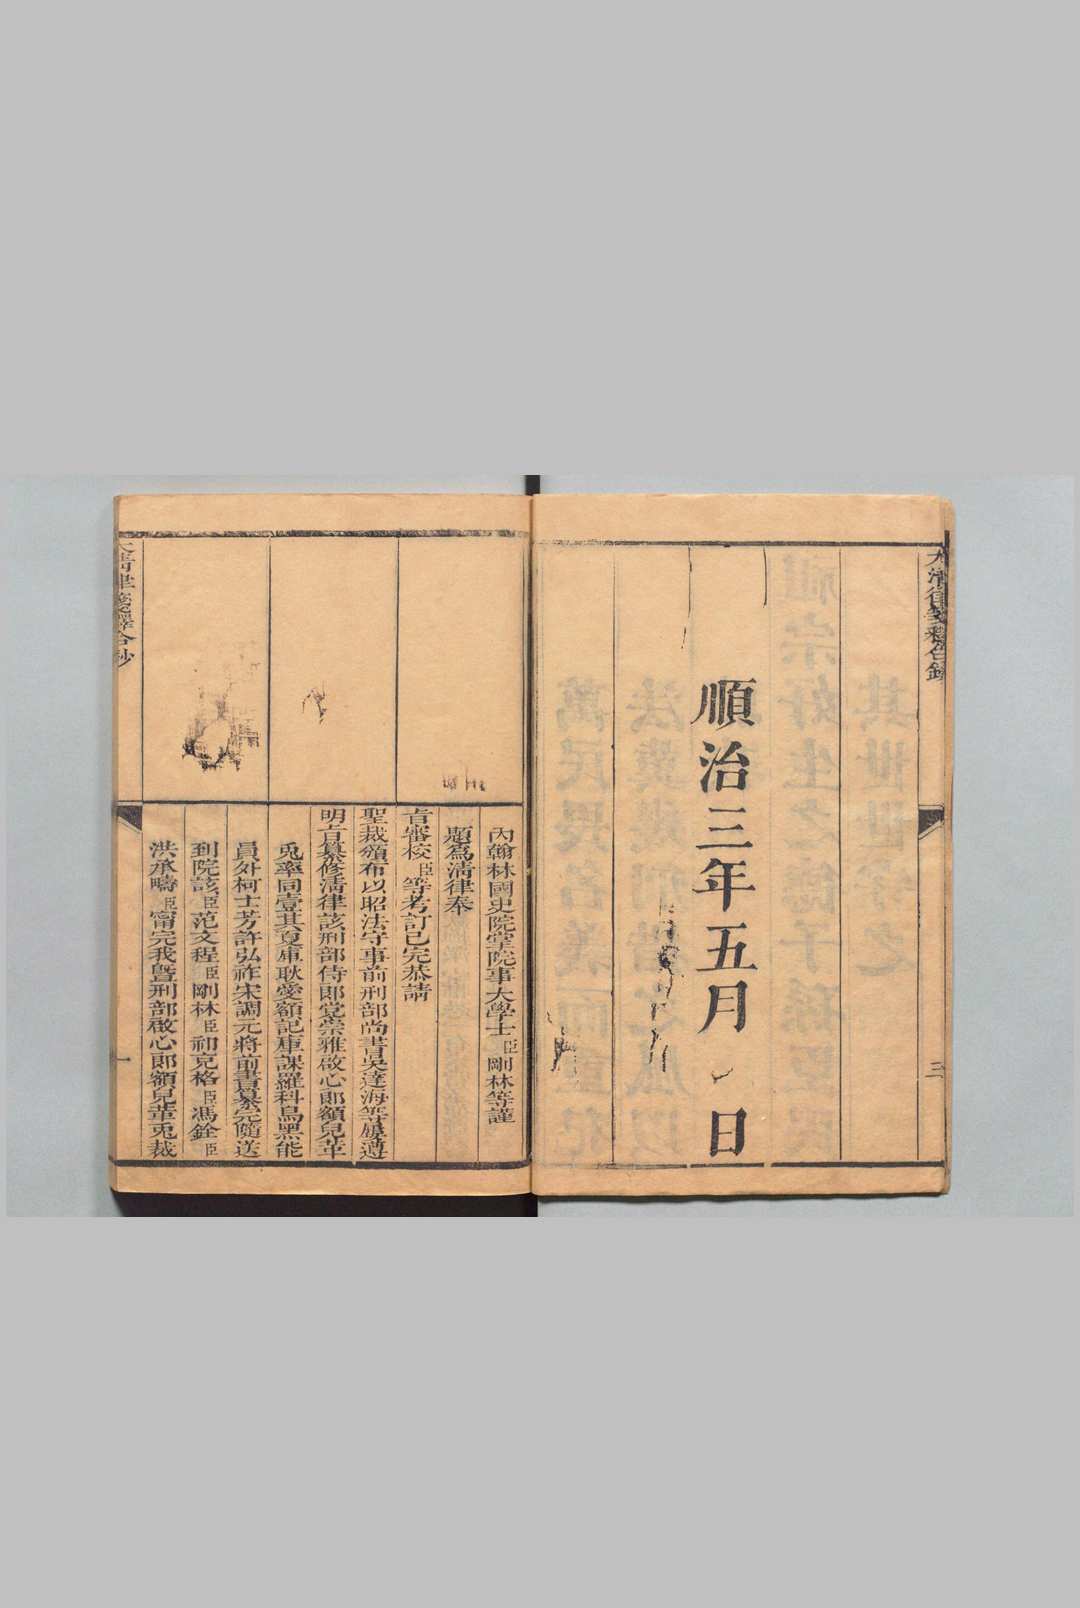 大清律
三
順治三年五月 日
內翰林國史院掌院事大學士臣剛林等謹
題為清律奉
旨審校臣等考訂已完恭請
聖裁頒布以昭法守事前刑部尚書吳達海等屢遵
明旨纂修清律該刑部侍郎党崇雅啟心郎額兒革
兎率同壹其夏庫耿愛額記庫課羅科烏黑能
員外柯士芳許弘祚宋調元將前書纂完隨送
到院該臣范文程臣剛林臣祁克格臣馮銓臣
洪承疇臣甯完我暨刑部啟心郎額兒革兎裁
大清律箋釋合鈔
一